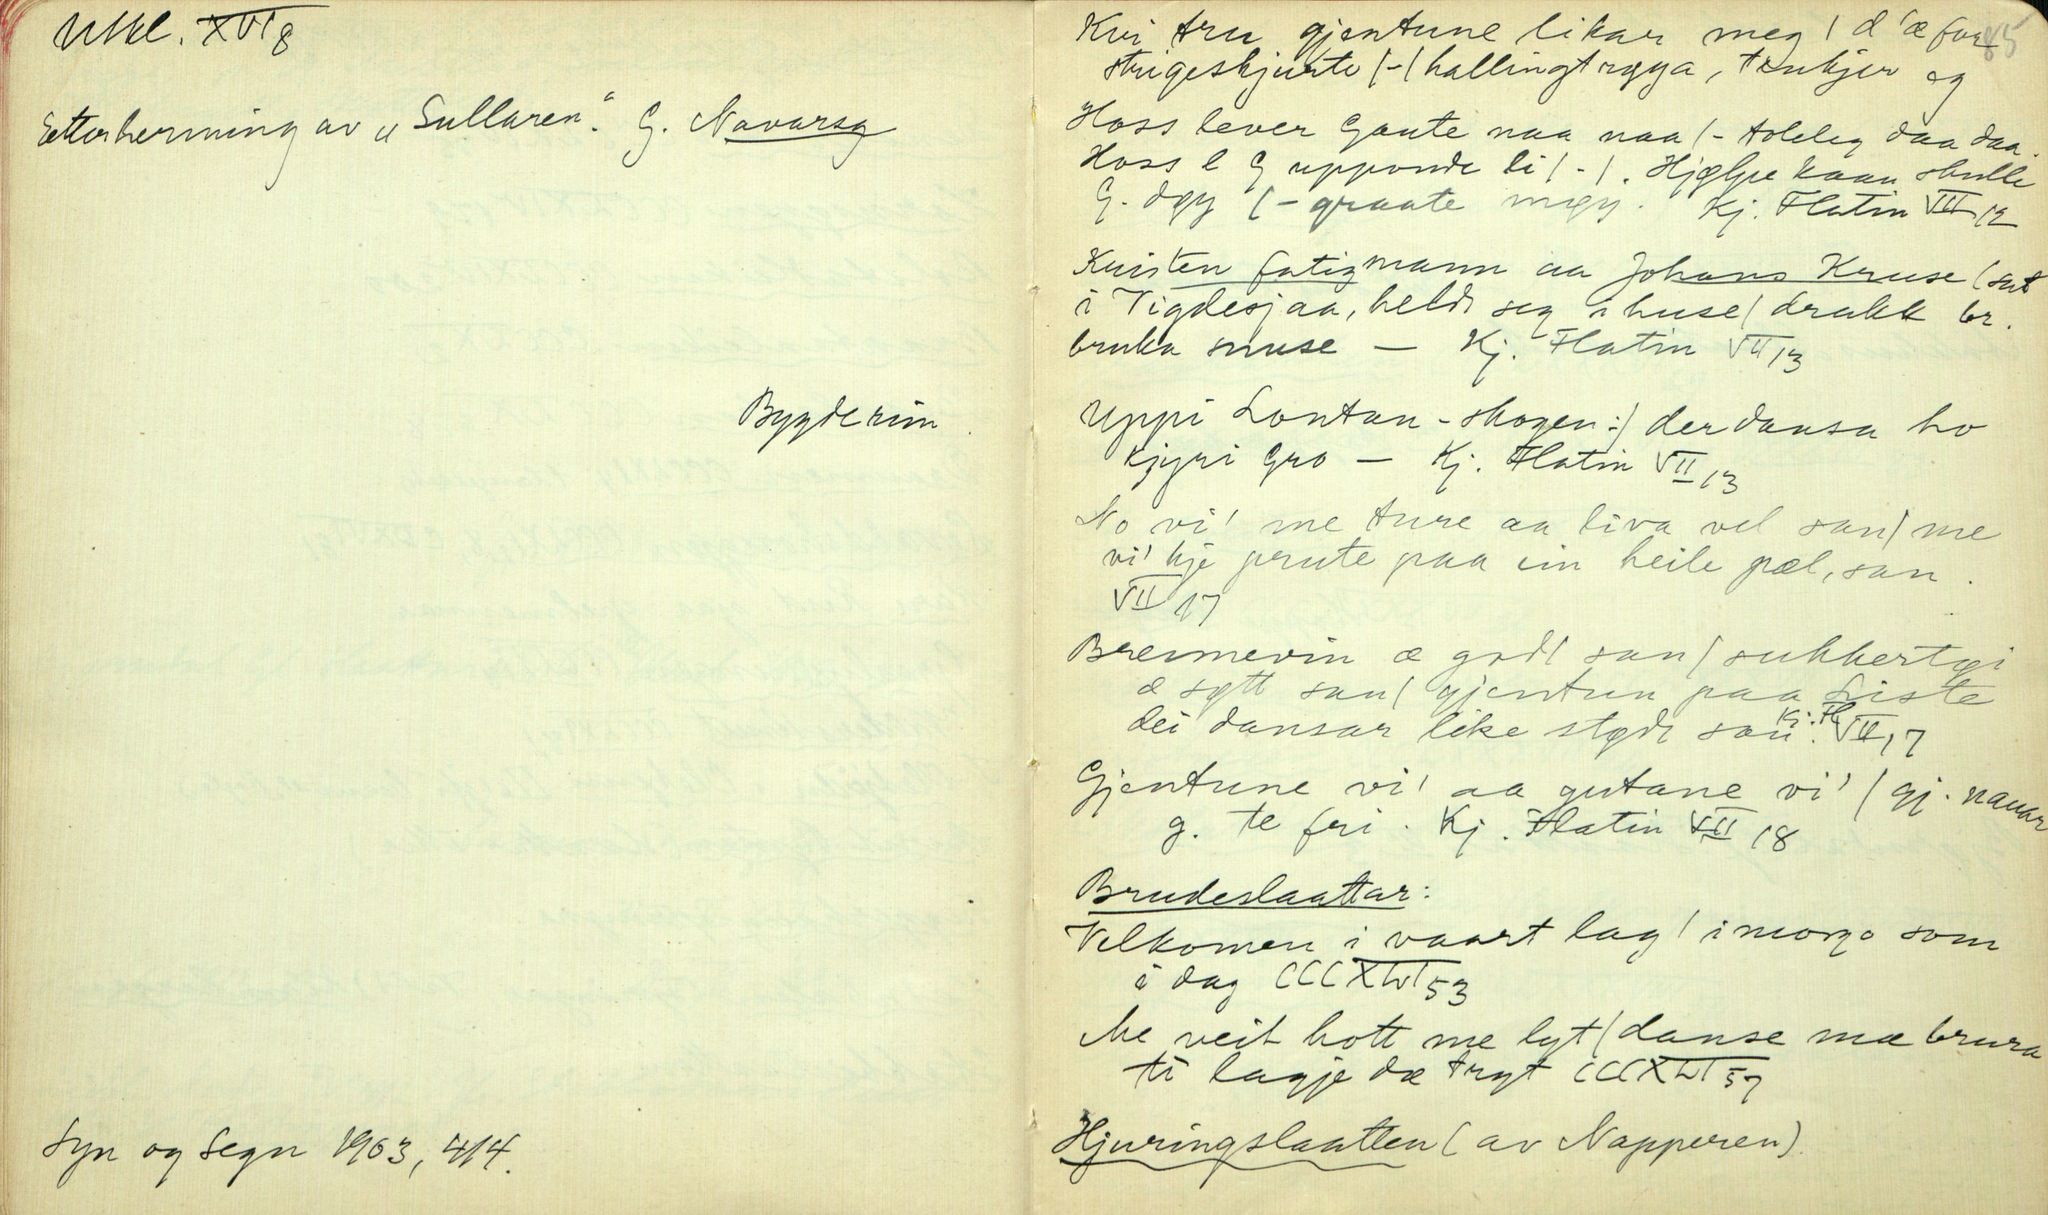 Utkl. XVI 8
Etterherming av „Sullaren“. G. Navarsg
Bygderim
Syn og Segn 1903, 414.
85
Kvi tru gjentune likar meg / d'æ for
strigeskjurte /-/ hallingtrøya, trukjer og
Hoss lever Gaute naa naa /- toleleg daa daa.
Hoss l G upponde li /-/. Hjølpe kaan skulle
G. døy /- graate møy. Kj. Flatin VII 12
Kristen fatigmann aa Johans Kruse (sat
i Vigdesjaa, heldt seg i huse / drakk br.
bruka snuse — Kj. Flatin VII 13
Uppi Lontan-skogen :/ der dansa ho
kjyri Gro — Kj. Flatin VII 13
No vi' me ture aa liva vel san / me
vi' kje prute paa ein heile pæl, san.
VII 17
Brennevin æ godt san / sukkertøi
æ søtt san / gjentun paa Liste
dei dansar like stødt san. Kj. Fl. VII 17
Gjentune vi' aa gutane vi' / gj. nauar
g. te fri. Kj. Flatin VII 18
Brudeslaattar:
Velkomen i vaart lag / i morgo som
i dag CCCXLVI 53
Me veit hott me lyt / danse mæ brura
ti lagje dæ tryt CCCXLVI 57
Hjuringslaatten (av Napperen).